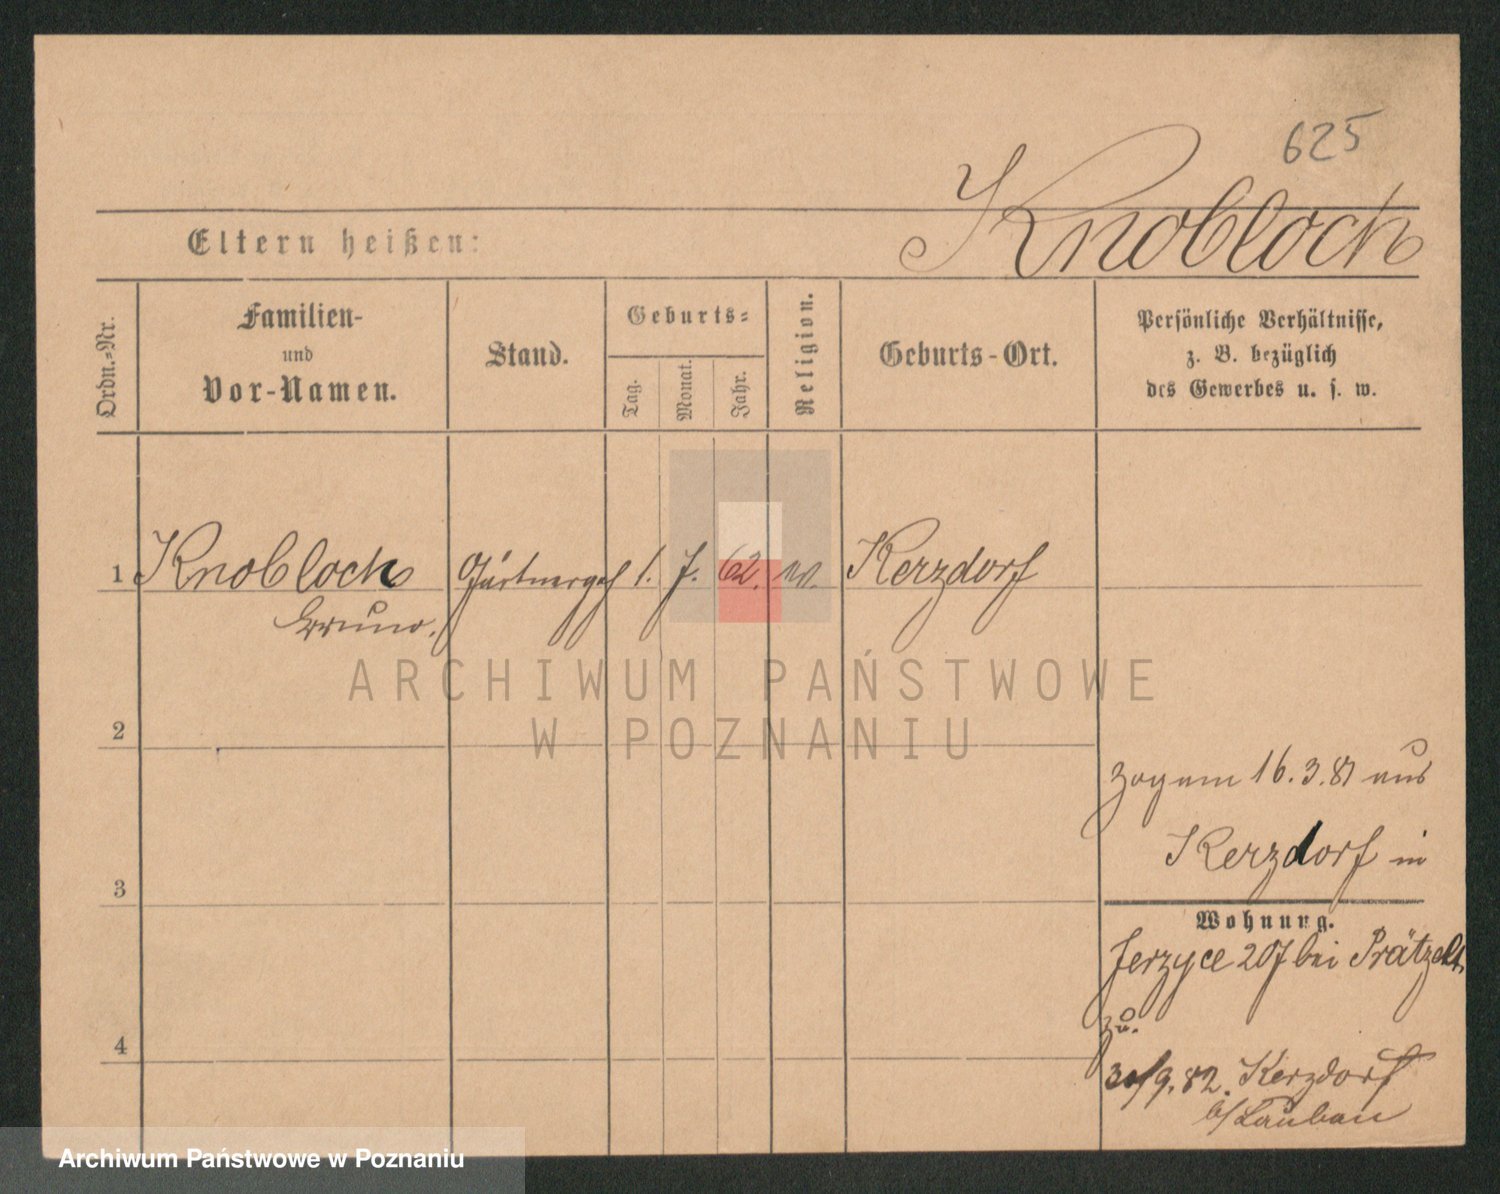 625
Knobloch
Eltern heißen:
Ordn.=Nr.
Familien-
und
Vor-Namen.
Stand.
Geburts=
Tag.
Monat.
Jahr.
Religion.
Geburts-Ort.
Persönliche Verhältnisse,
z. B. bezüglich
des Gewerbes u. s. w.
1 Knobloch Gärtnergeh 1. 7. 62. Kerzdorf
Bruno.
ARCHIWUM PAŃSTWOWE
W POZNANIU
2
zog am 16. 3. 81 aus
Kerzdorf in
3
Wohnung.
Jerzyce 207 bei Prätzelt.
zu.
4
30/9. 82. Kerzdorf
b/ Lauban
Archiwum Państwowe w Poznaniu